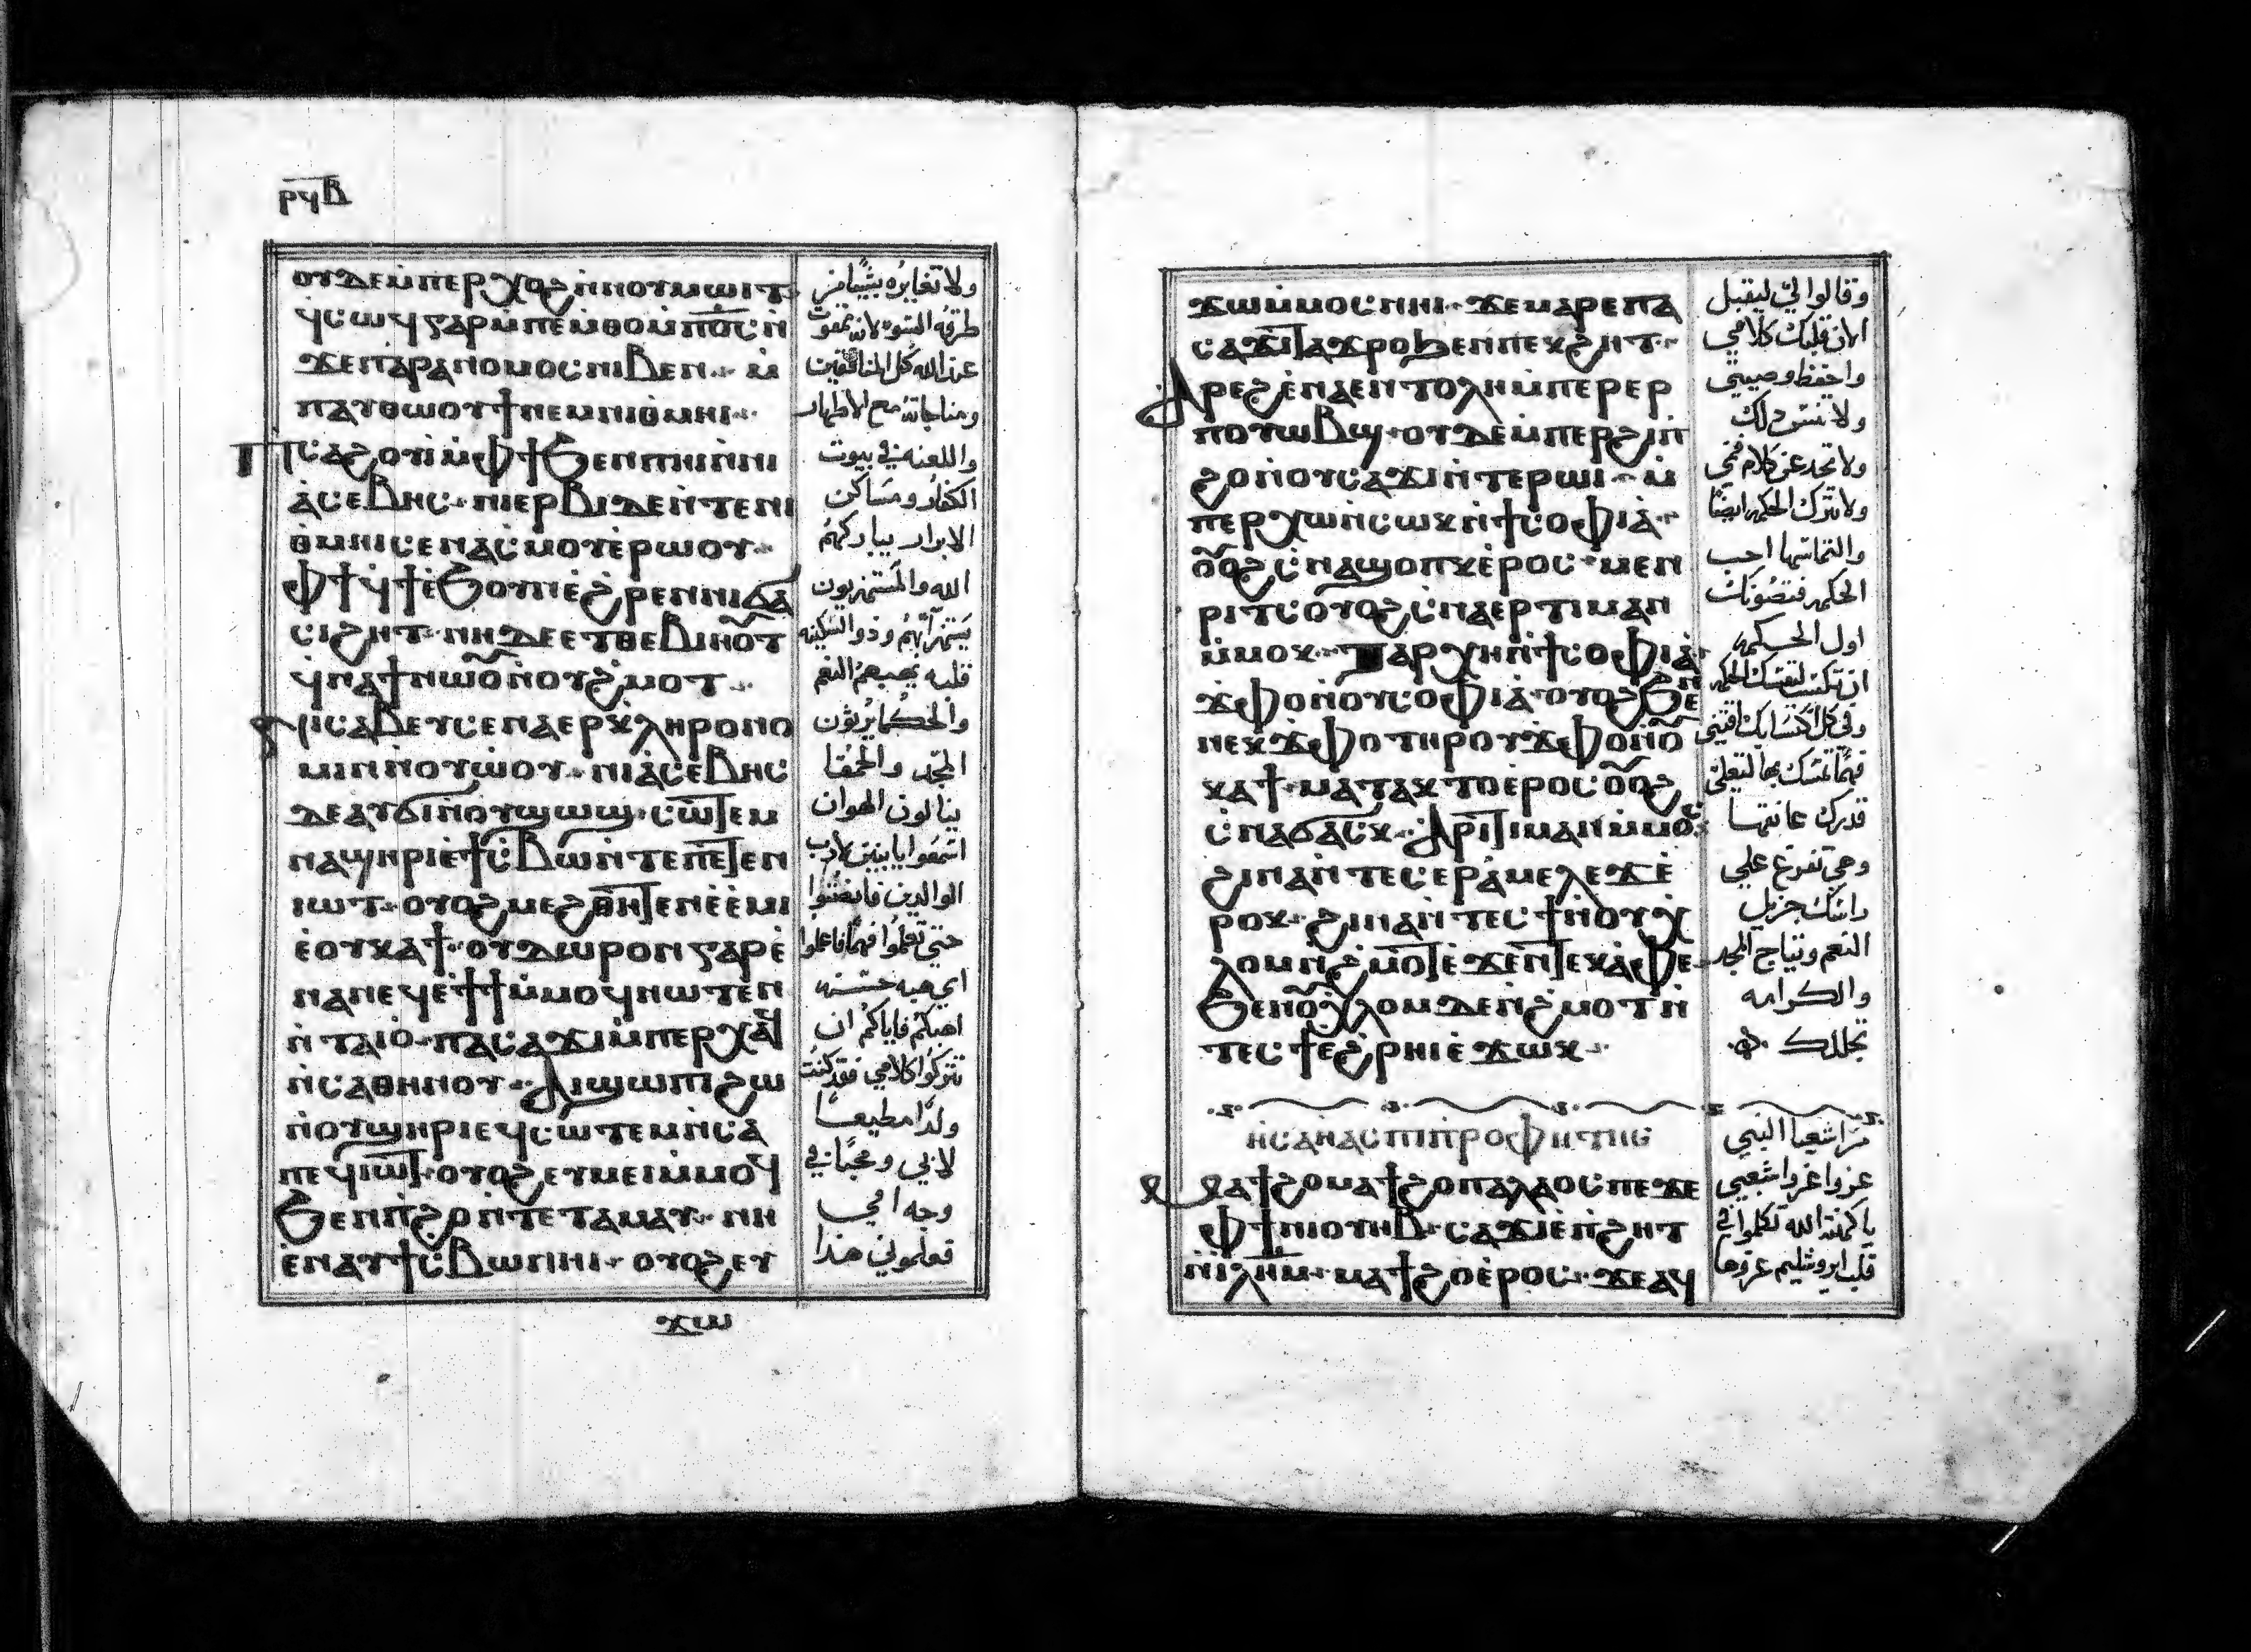 ⲣϥⲃ
ⲟⲩⲇⲉ ⲙ̀ⲡⲉⲣⲭⲟϩ ⲛ̀ⲛⲟⲩⲙⲱⲓⲧ
ϥⲥⲱϥ ⲅⲁⲣ ⲙ̀ⲡⲉⲙ̀ⲑⲟ ⲙ̀ⲡⲟ̅ⲥ̅ ⲛ̀
ϫⲉ ⲡⲁⲣⲁⲛⲟⲙⲟⲥ ⲛⲓⲃⲉⲛ ⲙ̀
ⲡⲁⲩⲑⲱⲟⲩϯ ⲛⲉⲙ ⲛⲓⲑⲙⲏⲓ
Ⲡⲥⲁϩⲟⲩⲓ ⲙ̀ⲫϯ ϧⲉⲛ ⲛⲓⲏⲓ ⲛ̀ⲛⲓ
ⲁ̀ⲥⲉⲃⲏⲥ ⲛⲓⲉⲣⲃⲓ ⲇⲉ ⲛ̀ⲧⲉ ⲛⲓ
ⲑⲙⲏⲓ ⲥⲉⲛⲁⲥ̀ⲙⲟⲩ ⲉ̀ⲣⲱⲟⲩ
ⲫϯ ϥϯ ⲉ̀ϧⲟⲩⲛ ⲉ̀ϩⲣⲉⲛ ⲛⲓϭⲁ
ⲥⲓϩⲏⲧ ⲛⲏ ⲇⲉ ⲉⲧⲑⲉⲃⲓⲏⲟⲩⲧ
ϥⲛⲁϯ ⲛⲱⲟⲩ ⲛ̀ⲟⲩϩ̀ⲙⲟⲧ
ⲛⲓⲥⲁⲃⲉⲩ ⲥⲉⲛⲁⲉⲣⲕⲗⲏⲣⲟⲛⲟ
ⲙⲓⲛ ⲛ̀ⲟⲩⲱ̀ⲟⲩ ⲛⲓⲁ̀ⲥⲉⲃⲏⲥ
ⲇⲉ ⲁⲩϭⲓ ⲛ̀ⲟⲩϣⲱϣ ⲥⲱⲧⲉⲙ
ⲛⲁϣⲏⲣⲓ ⲉ̀ϯⲥ̀ⲃⲱ ⲛ̀ⲧⲉ ⲡⲉⲧⲉⲛ
ⲓⲱⲧ ⲟⲩⲟϩ ⲙⲉϩⲑⲏⲧⲉⲛ ⲉ̀ⲉ̀ⲙⲓ
ⲉ̀ⲟⲩⲕⲁϯ ⲟⲩⲇⲱⲣⲟⲛ ⲅⲁⲣ ⲉ̀
ⲛⲁⲛⲉϥ ⲉϯϯ ⲙ̀ⲙⲟϥ ⲛⲱⲧⲉⲛ
ⲛ̀ⲧⲁⲓⲟ̀ ⲡⲁⲥⲁϫⲓ ⲙ̀ⲡⲉⲣⲭⲁϥ
ⲛ̀ⲥⲁⲑⲏⲛⲟⲩ ⲁⲓϣⲱⲡⲓ ϩⲱ
ⲛ̀ⲟⲩϣⲏⲣⲓ ⲉϥⲥⲱ̀ⲧⲉⲙ ⲛ̀ⲥⲁ
ⲡⲉϥⲓⲱⲧ ⲟⲩⲟϩ ⲉⲩⲙⲉⲓ ⲙ̀ⲙⲟϥ
ϧⲉⲛ ⲡ̀ϩⲟ ⲛ̀ⲧⲉ ⲧⲁⲙⲁⲩ ⲛⲏ
ⲉ̀ⲛⲁⲩϯⲥ̀ⲃⲱ ⲛⲏⲓ ⲟⲩⲟϩ ⲉⲩ
ϫⲱ
ولا تغايره بشيئا من
طرقه السوء لانه ممقوت
عند الله كل المنافقين
ومناجاته مع الاطهار
واللعنه في بيوت
الكفار ومساكن
الابرار يباركهم
الله والمستهزيون
يستهزابهم وذو السكينه
قلبه يهبهم النعم
والحكما يرثون
المجد والحمقا
ينالون الهوان
اسمعوا يا بنين لادب
الوالدين فانصتوا
حتي تعلموا فهما فاعلموا
اي هبه حسنه
اهبكم فاياكم ان
تتركوا كلامي فقد كنت
ولدا مطيعا
لابي ومحبا في
وجه امي
فعلموني هذا
ϫⲱ ⲙ̀ⲙⲟⲥ ⲛⲏⲓ ϫⲉ ⲙⲁⲣⲉ ⲡⲁ
ⲥⲁϫⲓ ⲧⲁϫⲣⲟ ϧⲉⲛ ⲡⲉⲕϩⲏⲧ
Ⲁⲣⲉϩ ⲉ̀ⲛⲁⲉⲛⲧⲟⲗⲏ ⲙ̀ⲡⲉⲣⲉⲣ
ⲡⲟⲩⲱⲃϣ ⲟⲩⲇⲉ ⲙ̀ⲡⲉⲣϩⲓⲡ
ϩⲟ ⲛ̀ⲟⲩⲥⲁϫⲓ ⲛ̀ⲧⲉ ⲣⲱⲓ ⲙ̀
ⲡⲉⲣⲭⲱ ⲛ̀ⲥⲱⲕ ⲛ̀ϯⲥⲟⲫⲓⲁ̀
ⲟⲩⲟϩ ⲥ̀ⲛⲁϣⲟⲡⲕ ⲉ̀ⲣⲟⲥ ⲙⲉⲛ
ⲣⲓⲧⲥ ⲟⲩⲟϩ ⲥ̀ⲛⲁⲉⲣⲧⲓⲙⲁⲛ
ⲙ̀ⲙⲟⲕ ⲧⲁⲣⲭⲏ ⲛ̀ϯⲥⲟⲫⲓⲁ̀
ϫⲫⲟ ⲛ̀ⲟⲩⲥⲟⲫⲓⲁ̀ ⲟⲩⲟϩ ϧⲉⲛ
ⲛⲉⲕϫⲫⲟ ⲧⲏⲣⲟⲩ ϫⲫⲟ ⲛ̀ⲟ
ⲕⲁϯ ⲙⲁⲧⲁⲕⲧⲟ ⲉ̀ⲣⲟⲥ ⲟⲩⲟϩ
ⲥ̀ⲛⲁϭⲁⲥⲕ Ⲁⲣⲓⲧⲓⲙⲁⲛ ⲙ̀ⲙⲟⲥ
ϩⲓⲛⲁ ⲛ̀ⲧⲉⲥⲉⲣⲁ̀ⲙⲉⲗⲉϫ ⲉ̀
ⲣⲟⲕ ϩⲓⲛⲁ ⲛ̀ⲧⲉⲥϯ ⲛ̀ⲟⲩⲭ̀
ⲗⲟⲙ ⲛ̀ϩⲙⲟⲧ ⲉ̀ϫⲉⲛ ⲧⲉⲕⲁ̀ⲫⲉ
ϧⲉⲛ ⲟⲩⲭⲗⲟⲙ ⲇⲉ ⲛ̀ϩ̀ⲙⲟⲧ ⲛ̀
ⲧⲉⲥϯ ⲉ̀ϩ̀ⲣⲏⲓ ⲉ̀ϫⲱⲕ
ⲏⲥⲁⲏⲁⲥ ⲡⲓⲡⲣⲟⲫⲏⲧⲏⲥ
Ⲙⲁϯϩⲟ ⲙⲁϯϩⲟ ⲡⲁⲗⲁⲟⲥ ⲡⲉϫⲉ
ⲫϯ ⲛⲓⲟⲩⲏⲃ ⲥⲁϫⲓ ⲉ̀ⲡ̀ϩⲏⲧ
ⲛ̀ⲓⲗⲏⲙ ⲙⲁϯϩⲟ ⲉ̀ⲣⲟⲥ ϫⲉ ⲁϥ
وقالوا لي ليقبل
الان قلبك كلامي
واحفظ وصيتي
ولا تنس ذلك
ولا تحد عن كلام فمي
ولا تترك الحكمه ايضا
والتماسها احب
الحكمه فتصونك
اول الحكمه
ان تكتسب لنفسك الحكمه
وفي كل اكتسابك اقتني
فهما تمسك بها لتعلي
قدرك عانقها
وهي تفرع علي
راسك جزيل
النعم وبتاج المجد
والكرامه
تجللك
من اشعيا النبي
عزوا عزوا شعبي
يا كهنة الله تكلموا في
قلب ايروشليم عزوها